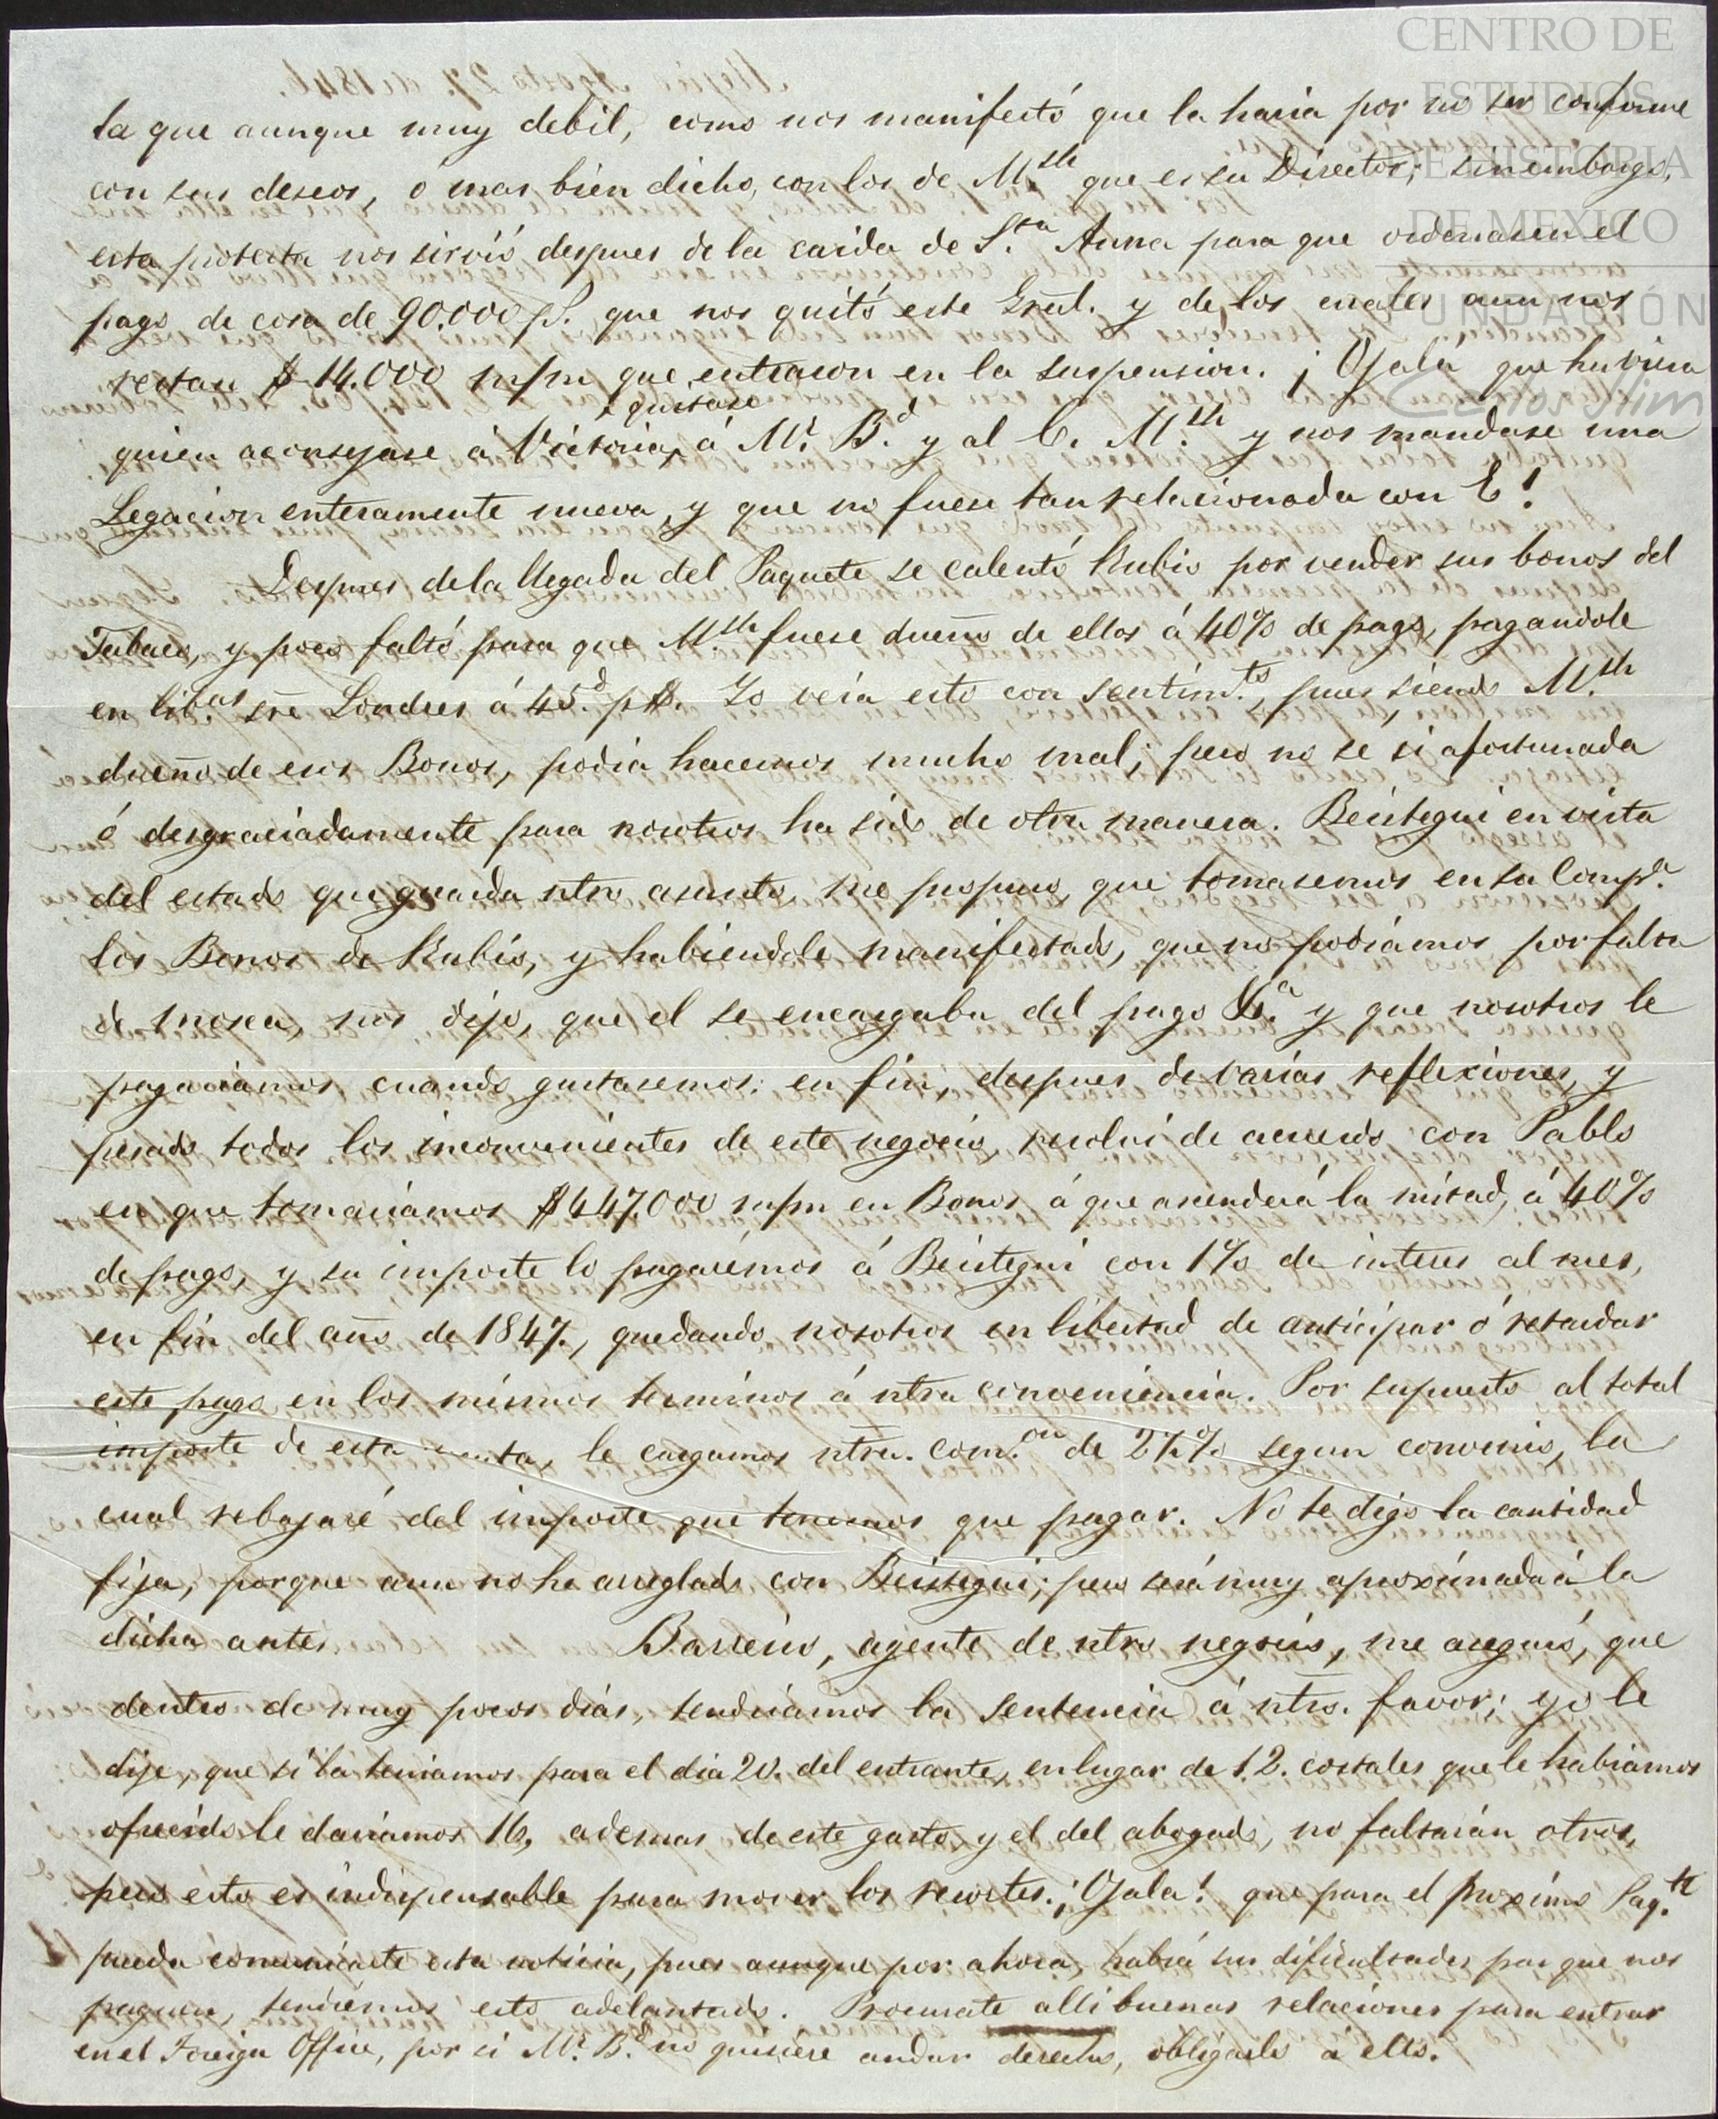 CENTRO DE
ESTUDIOS
DE HISTORIA
DE MEXICO
FUNDACIÓN
Carlos Slim
Mejico Agosto 27. de 1846.
ta que aunque muy debil, como nos manifestó que la haria por no ser conforme
con sus deseos, ó mas bien dicho, con los de M.sh que es su Director; sinembargo,
esta protesta nos sirvió despues de la caida de S.ta Anna para que ordenasen el
pago de cosa de 90.000 p$. que nos quitó este Gral. y de los cuales aun nos
restan $ 14.000 m/m que entraron en la suspension. ¡Ojalá que huviera
quien aconsejase á Victoria, quitase á Mr. B.d y al C. M.sh y nos mandase una
Legacion enteramente nueva, y que no fuese tan relacionada con E!
Despues de la llegada del Paquete se calentó Rubio por vender sus bonos del
Tabaco, y poco faltó para que M.sh fuese dueño de ellos á 40% de pago, pagandole
en lib.as sre Londres á 45.d p$. Yo veia esto con sentim.to, pues siendo M.sh
dueño de esos Bonos, podia hacernos mucho mal; pero no sé si afortunada
ó desgraciadamente para nosotros ha sido de otra manera. Beistegui en vista
del estado que guarda ntro asunto, me propuso, que tomasemos en sa Comp.a
los Bonos de Rubio, y habiendole manifestado, que no podiámos por falta
de mosca, nos dijo, que el se encargaba del pago &.a y que nosotros le
pagariamos cuando gustasemos: en fin, despues de varias reflexiones, y
pesado todos los inconvenientes de este negocio, resolví de acuerdo con Pablo
en que tomariámos $447.000 m/m en Bonos á que ascenderá la mitad, á 40%
de pago, y su importe lo pagarémos á Beistegui con 1% de interes al mes,
en fin del año de 1847., quedando nosotros en libertad de anticipar ó retardar
este pago en los mismos terminos á ntra conveniencia. Por supuesto al total
importe de esta venta, le cargamos ntra. com.on de 2½% segun convenio, la
cual rebajaré del importe que tenemos que pagar. No te digo la cantidad
fija, porque aun no he arreglado con Beistegui; pero será muy aproximada á la
dicha antes. Barreiro, agente de ntro negocio, me aseguró, que
dentro de muy pocos dias, tendriamos la sentencia á ntro. favor; yo le
dije, que si la teniamos para el dia 20. del entrante, en lugar de 12. costales que le habiamos
ofrecido le dariamos 16, ademas de este gasto, y el del abogado, no faltarán otros,
pero esto es indispensable para mover los resortes. ¡Ojala! que para el proximo Paq.te
pueda comunicarte esta noticia, pues aunque por ahora, habrá sus dificultades par que nos
paguen, tendrémos esto adelantado. Procurate alli buenas relaciones para entrar
en el Foreign Office, por si Mr. B.d no quisiere andar derecho, obligarlo á ello.